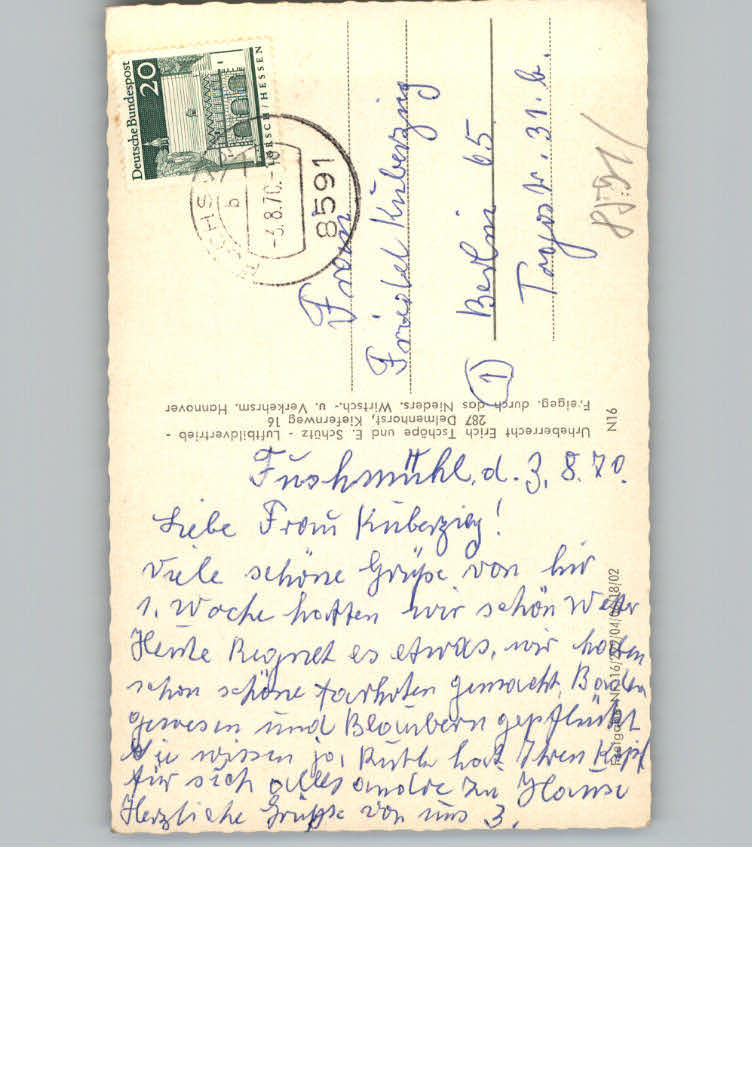 Fushmühl, d. 3. 8. 70.
Liebe Frau Kuberzig!
Viele schöne Grüße von hir
1. Woche hatten wir schön Wetter
Heute Regnet es etwas, wir haben
schon schöne farhrten gemacht, Baden
gewesen und Blaubern gepflückt
Sie wissen ja, Ruth hat Ihren Kopf
für sich alles andre zu Hause
Herzliche Grüße von uns 3.
Deutsche Bundespost
20
LORSCH/HESSEN
b
-3.8.70.-18
8591
Frau
Friedel Kuberzig
1 Berlin 65
Togostr. 31. b.
Urheberrecht Erich Tschöpe und E. Schütz - Luftbildvertrieb -
287 Delmenhorst, Kiefernweg 16
Freigeg. durch das Nieders. Wirtsch.- u. Verkehrsm. Hannover
N16